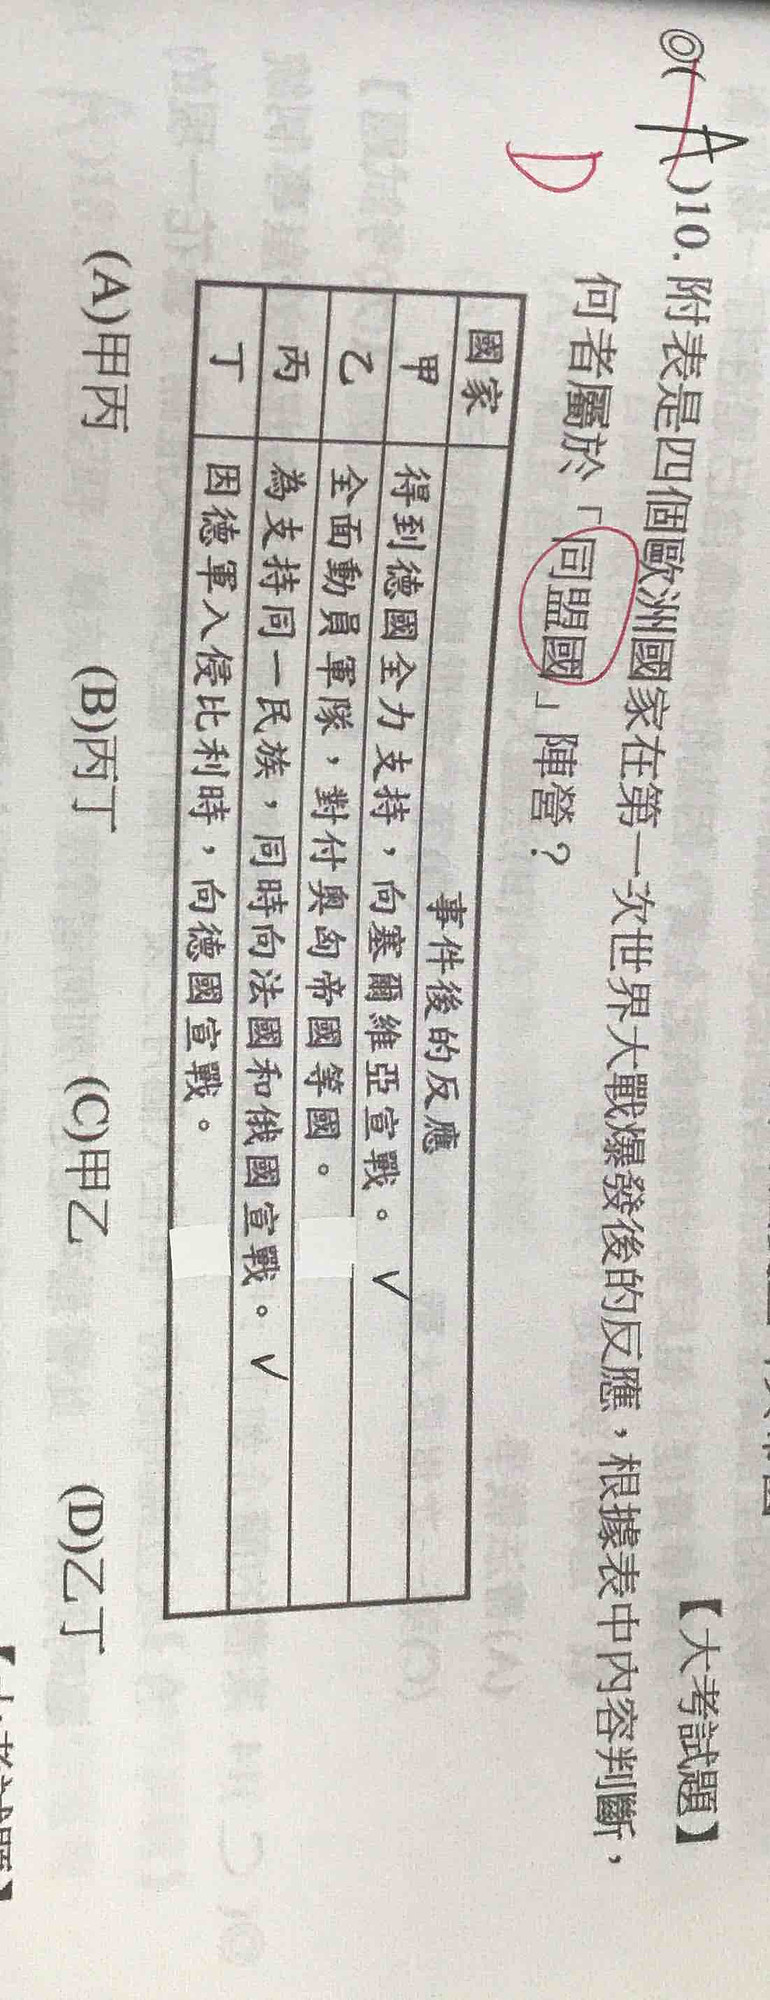 ◎( A )10. 附表是四個歐洲國家在第一次世界大戰爆發後的反應，根據表中內容判斷，
D
何者屬於「同盟國」陣營？
【大考試題】
國家 事件後的反應
甲 得到德國全力支持，向塞爾維亞宣戰。✓
乙 全面動員軍隊，對付奧匈帝國等國。
丙 為支持同一民族，同時向法國和俄國宣戰。✓
丁 因德軍入侵比利時，向德國宣戰。
(A)甲丙 (B)丙丁 (C)甲乙 (D)乙丁